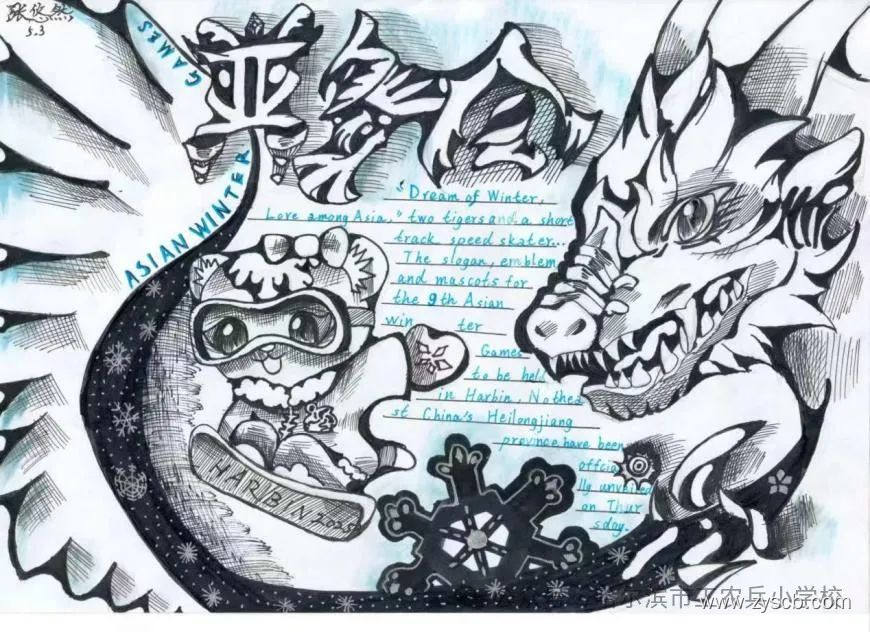 张悠然
5.3
ASIAN WINTER GAMES
亚冬会
"Dream of Winter,
Love among Asia," two tigers and a short
track speed skater...
The slogan, emblem
and mascots for
the 9th Asian
win ter
Games
to be held
in Harbin, Nothea
st China's Heilongjiang
province have been
officia
lly unveiled
on Thur
sday.
HARIBIN 2025
尔滨市工农兵小学校